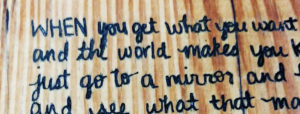 WHEN you get what you want
and the world makes you
just go to a mirror and
and see what that